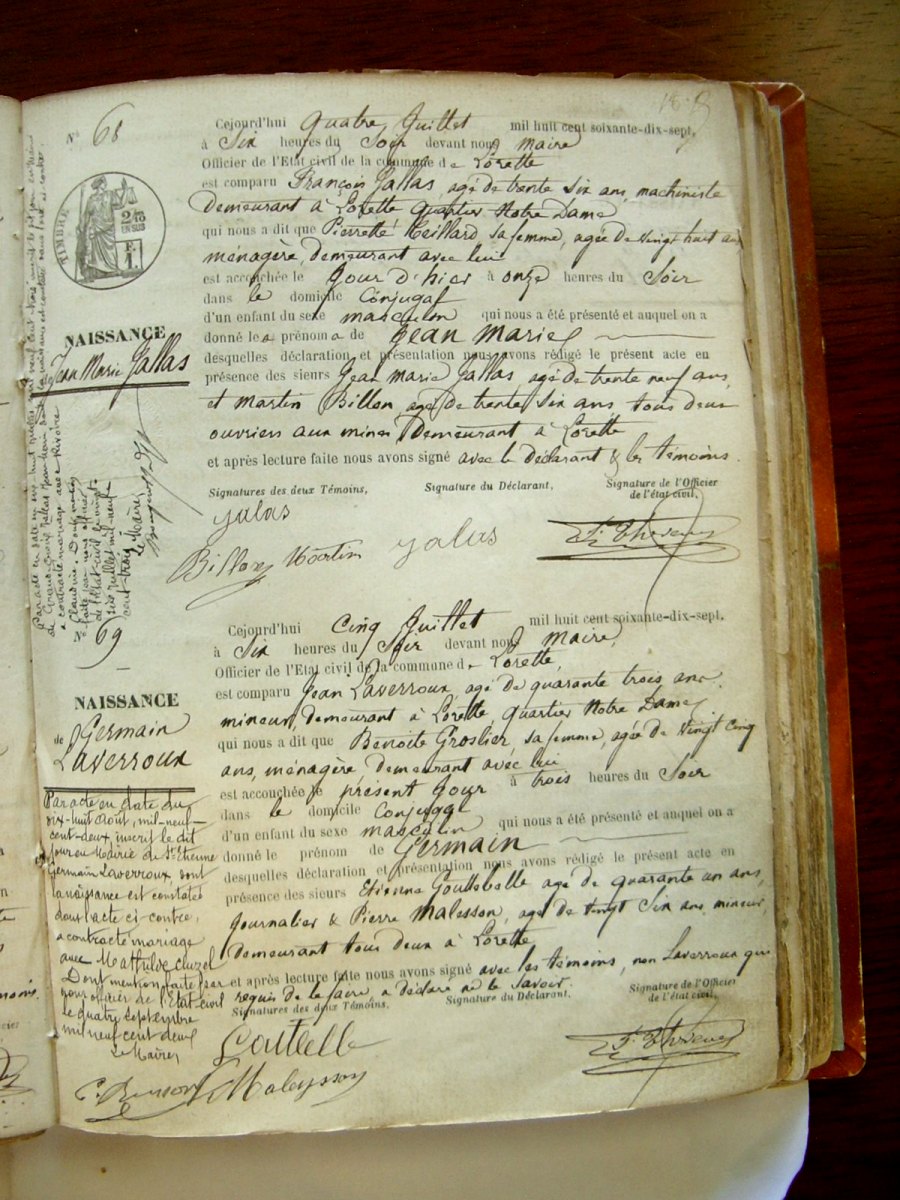 Nº 68
TIMBRE
2/10
EN SUS
F.
1.
NAISSANCE
de Jean Marie Jallas
Cejourd'hui Quatre Juillet mil huit cent soixante-dix-sept,
à Six heures du Soir devant nous Maire
Officier de l'Etat civil de la commune de Lorette
est comparu François Jallas, agé de trente Six ans, machiniste
demeurant à Lorette quartier Notre Dame
qui nous a dit que Pierrette sa femme, agée de vingt huit ans
ménagère, demeurant avec lui
est accouchée le Jour d'hier à onze heures du Soir
dans le domicile Conjugal
d'un enfant du sexe masculin qui nous a été présenté et auquel on a
donné les prénoms de Jean Marie
desquelles déclaration et présentation nous avons rédigé le présent acte en
présence des sieurs Jean Marie Jallas, agé de trente neuf ans,
et Martin Billon, agé de trente Six ans tous deux
ouvriers aux mines demeurant à Lorette
et après lecture faite nous avons signé avec le Déclarant & les témoins.
Signatures des deux Témoins, Signature du Déclarant, Signature de l'Officier
de l'état civil,
Jalas
Billon Martin Jalas
Nº 69
NAISSANCE
de Germain
Laverroux
Cejourd'hui Cinq Juillet mil huit cent soixante-dix-sept,
à Six heures du Soir devant nous Maire,
Officier de l'Etat civil de la commune de Lorette,
est comparu Jean Laverroux, agé de quarante trois ans.
mineur, demeurant à Lorette, quartier Notre Dame,
qui nous a dit que Benoite Groslier, sa femme, agée de vingt Cinq
ans, ménagère, demeurant avec lui
est accouchée le présent Jour à trois heures du Soir
dans le domicile Conjugal
d'un enfant du sexe masculin qui nous a été présenté et auquel on a
donné le prénom de Germain
desquelles déclaration et présentation nous avons rédigé le présent acte en
présence des sieurs Etienne Gouttebelle agé de quarante un ans,
Journalier & Pierre Malesson, agé de vingt Six ans mineur,
demeurant tous deux à Lorette
et après lecture faite nous avons signé avec les témoins, non Laverroux qui
requis de le faire a déclaré ne le savoir.
Signatures des deux Témoins, Signature du Déclarant, Signature de l'Officier
de l'état civil,
Par acte en date du
dix-huit Août, mil-neuf-
cent-deux, inscrit le dit
jour en Mairie de St Etienne
Germain Laverroux dont
la naissance est constatée
dans l'acte ci-contre,
a contracté mariage
avec Mathilde Cluzel
Dont mention faite par
nous officier de l'Etat Civil
le quatre Septembre
mil neuf cent deux
Le Maire,